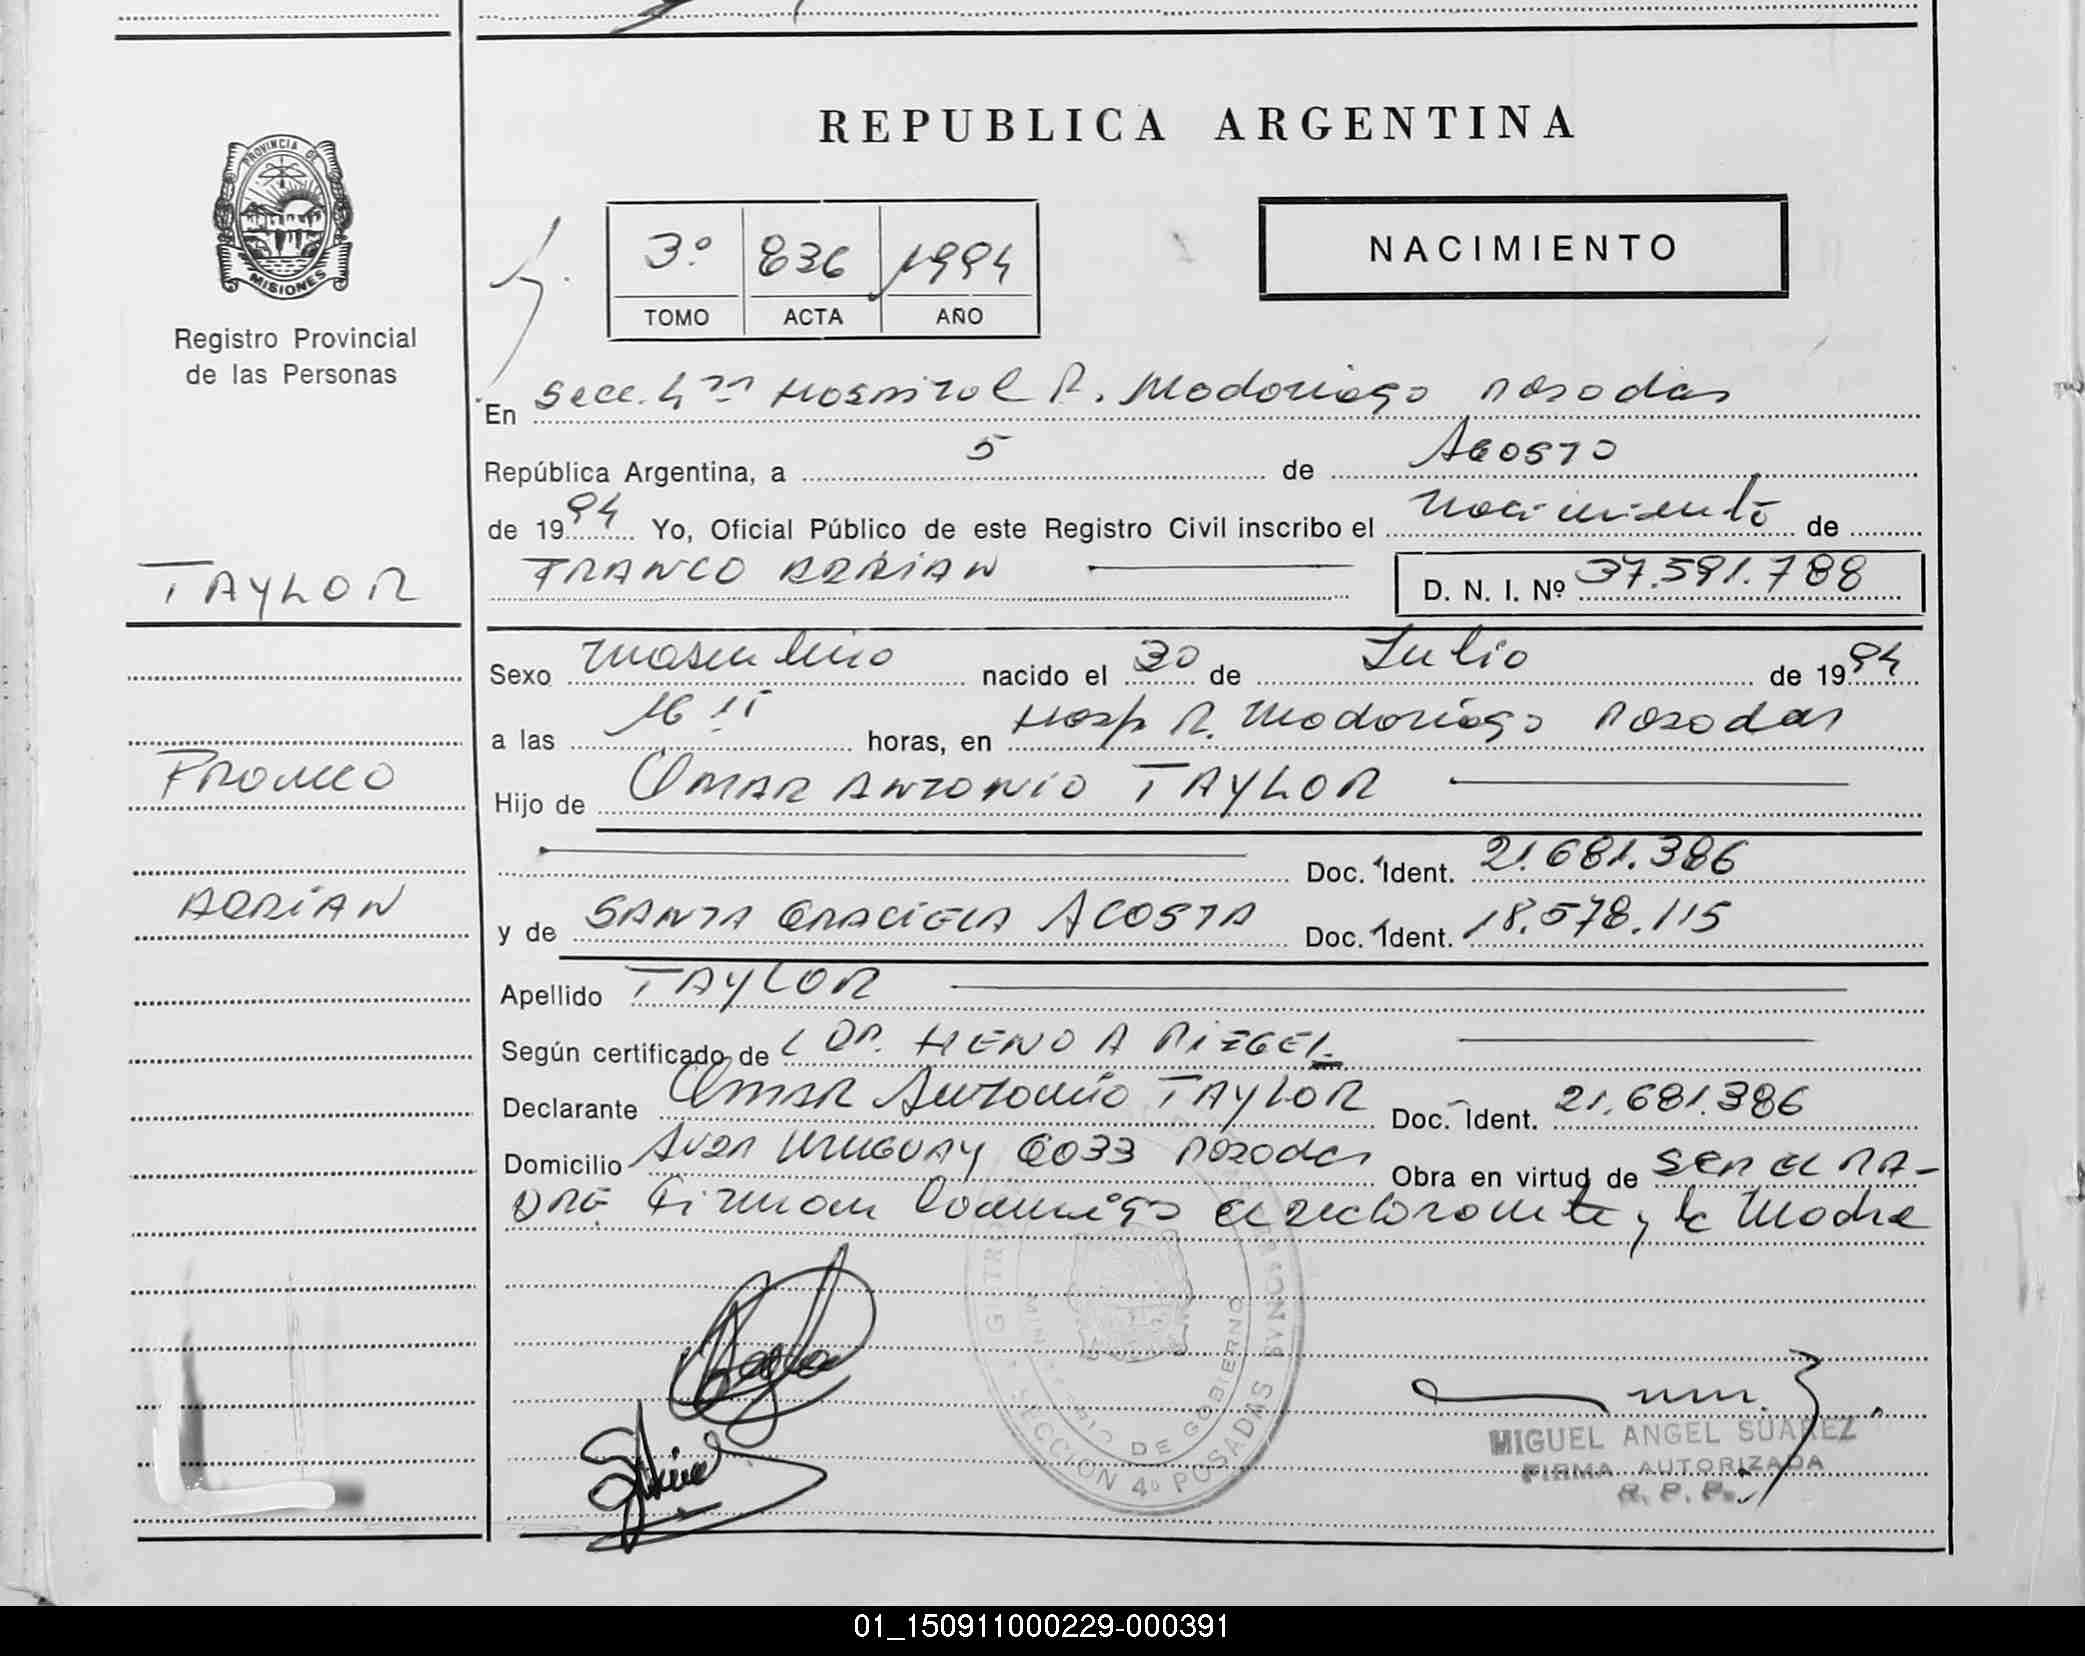 REPUBLICA ARGENTINA
PROVINCIA DE
MISIONES
Registro Provincial
de las Personas
3º 836 1994
TOMO ACTA AÑO
NACIMIENTO
En Secc. 4ta Hospital R. Madariaga Posadas
República Argentina, a 5 de Agosto
de 1994 Yo, Oficial Público de este Registro Civil inscribo el Nacimiento de
FRANCO ADRIAN D. N. I. Nº 37.591.788
TAYLOR
FRANCO
ADRIAN
Sexo Masculino nacido el 30 de Julio de 1994
a las 16 15 horas, en Hosp R. Madariaga Posadas
Hijo de OMAR ANTONIO TAYLOR
Doc. Ident. 21.681.386
y de SANTA GRACIELA ACOSTA Doc. Ident. 18.578.115
Apellido TAYLOR
Según certificado de DR. A
Declarante OMAR ANTONIO TAYLOR Doc. Ident. 21.681.386
Domicilio AVDA URUGUAY 6033 Posadas Obra en virtud de SER EL PA-
DRE Firman conmigo el declarante y la Madre
MINISTERIO DE GOBIERNO
SECCION 4º POSADAS
MIGUEL ANGEL SUAREZ
FIRMA AUTORIZADA
R. P. P.
01_150911000229-000391